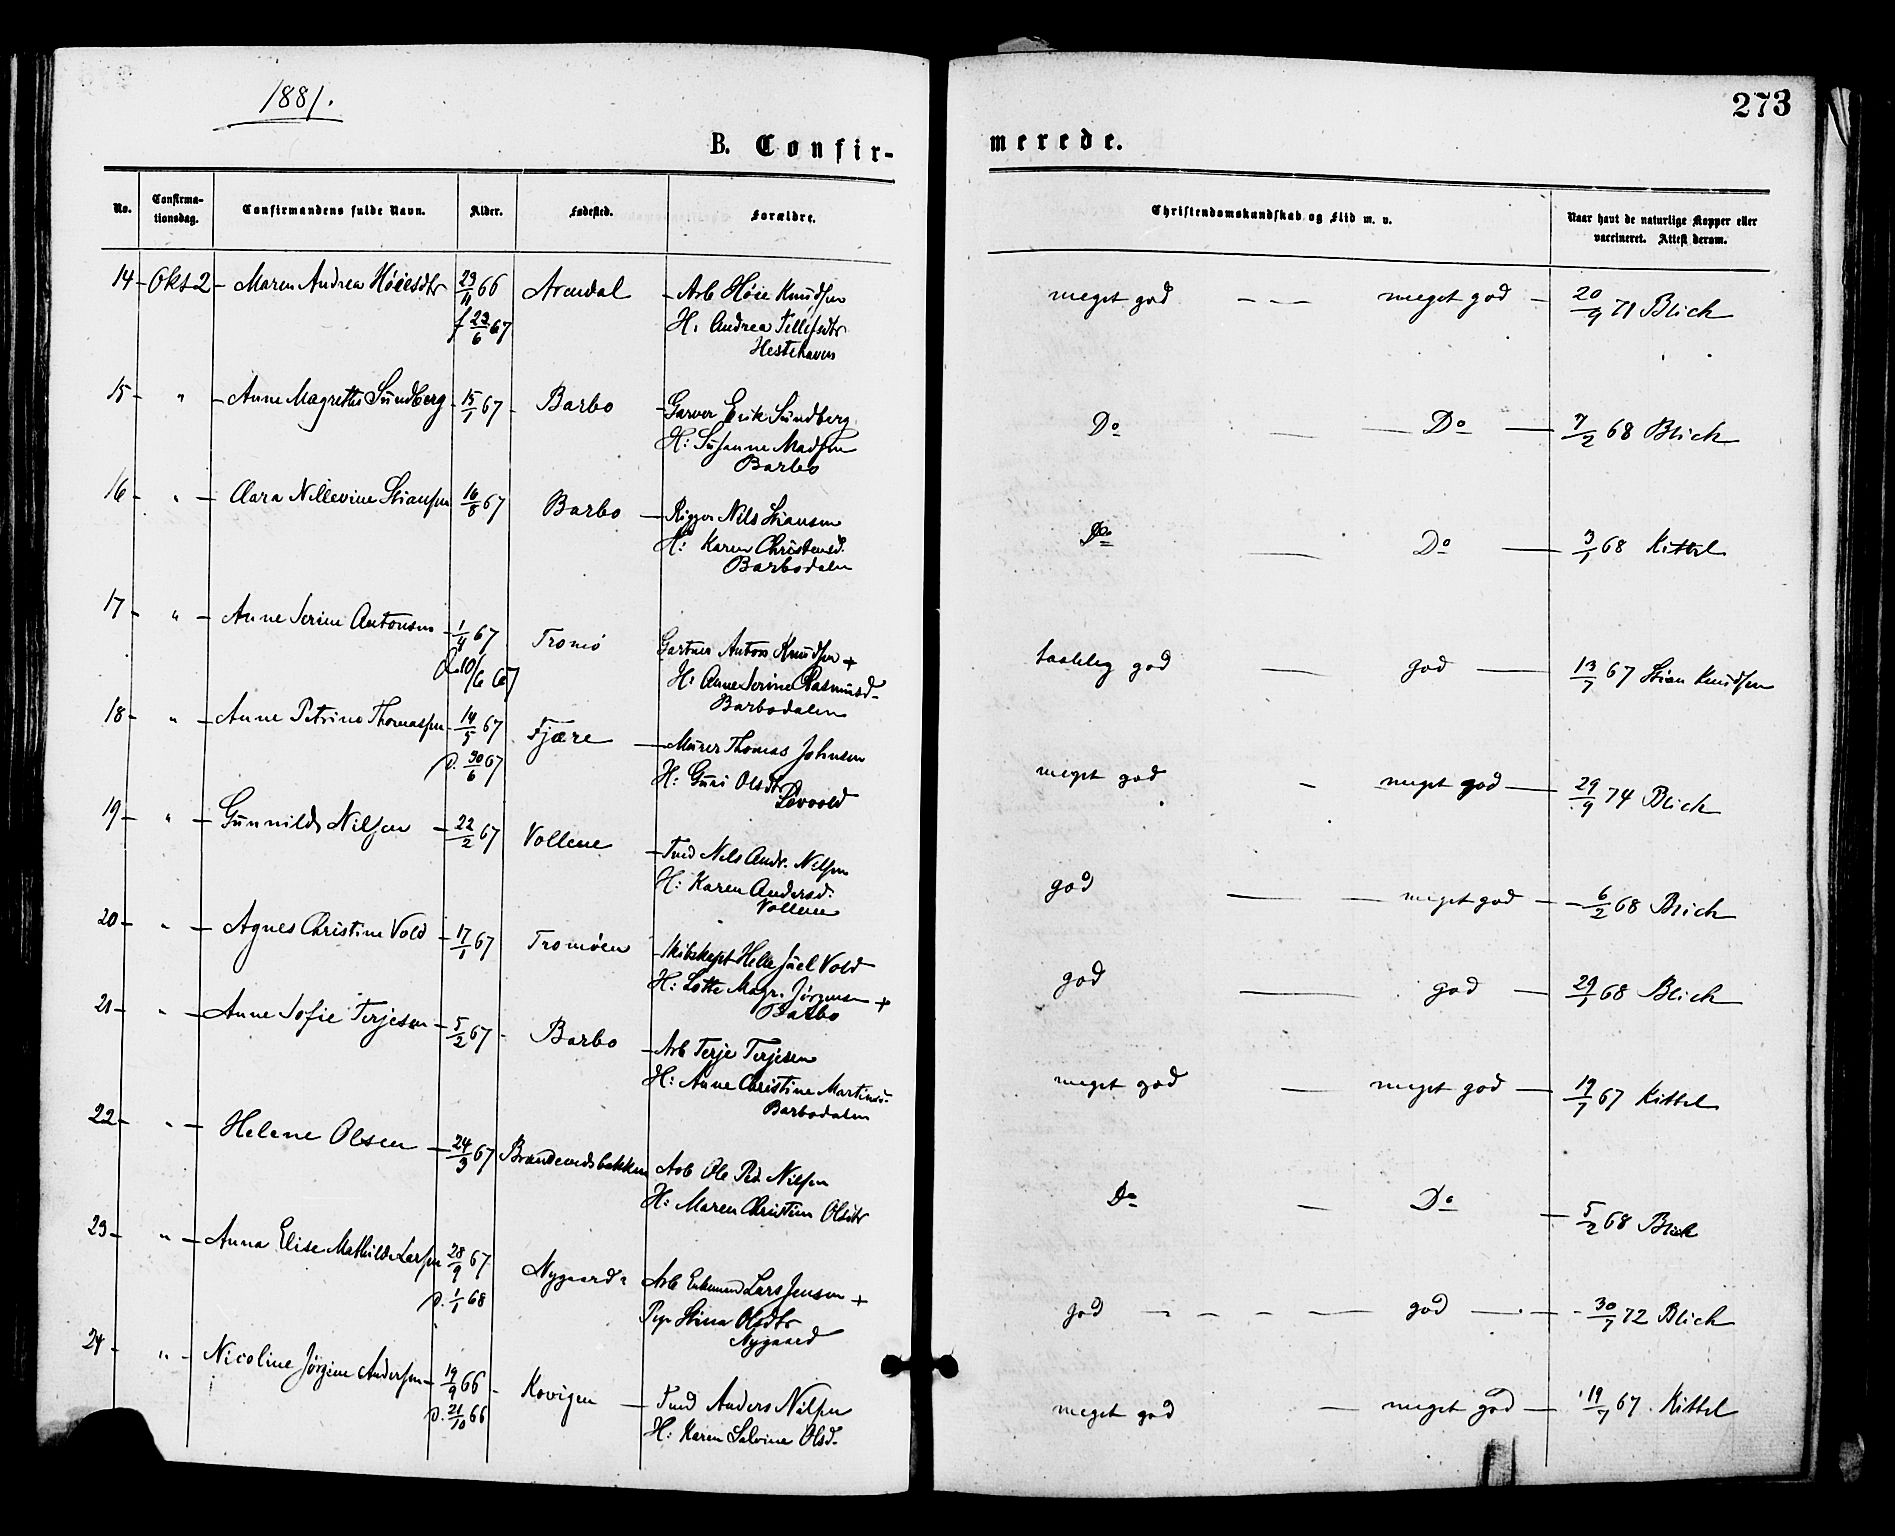 1881.
273
B. Confir-
merede.
No. Confirma-tionsdag. Confirmandens fulde Navn. Alder. Fødested. Forældre. Christendomskundskab og Flid m. v. Naar havt de naturlige Kopper eller vaccineret. Attest derom.
14 - Okt 2 - Maren Andrea Høiesdtr 23/11 66 Arendal - Arb Høie Knudsen meget god - - - meget god - 20/9 71 Blick
f 23/6 67 H. Andrea Tellefsdtr
Hestehaven
15 - " - Anne Magrethe Sundberg - 15/1 67 - Barbo - Garver Erik Sundberg Do — — Do — 7/2 68 Blick
H: Susanne Madsen
Barbo
16 - " - Clara Nillevine Stiansen 16/8 67 Barbo — Rigger Nils Stiansen Do — Do — 3/1 68 Kittel
H: Karen Christensd.
Barbodalen
17 - " - Anne Serine Antonsen - 1/4 67 Tromø Gartner Anton Knudsen + taalelig god — god — 13/7 67 Stian Knudsen
D. 10/6 67 H: Anne Serine Rasmusd-
Barbodalen
18 - " - Anne Petrine Thomassen - 14/5 67 Fjære — Murer Thomas Johnsen meget god - meget god — 29/9 74 Blick
D. 30/6 67 H: Guri Olsdtr
19 - " - Gunnild Nilsen - 22/2 67 Vollene - Tmd Nils Andr. Nilsen god — — meget god - 6/2 68 Blick
H: Karen Andersd.
Vollene
20 - " - Agnes Christine Vold - 17/1 67 Tromøen - Skibskapt Helle Juel Vold god — god - 29/1 68 Blick
H: Lotte Magr. Jørgensen +
Barbo
21 - " - Anne Sofie Terjesen - 5/2 67 - Barbo - Arb Terje Terjesen meget god — meget god — 19/7 67 Kittel
H: Anne Christine
Barbodalen
22 - " - Helene Olsen — 24/3 67 Arb Ole Ped. Nilsen Do — Do — 5/2 68 Blick
H: Maren Christine Olsdtr
23 - " - Anna Elise Mathilde Larsen 28/9 67 Nygaard Arb Lars Jensen + god - - - - god — - 30/7 72 Blick
D. 1/1 68 Stina Olsdtr
Nygaard
24 - " - Nicoline Jørgine Andersen - 19/9 66 - Kovigen — Tmd Anders Nilsen meget god — meget god — 19/7 67. Kittel
D. 21/10 66 H: Karen Salvine Olsd.